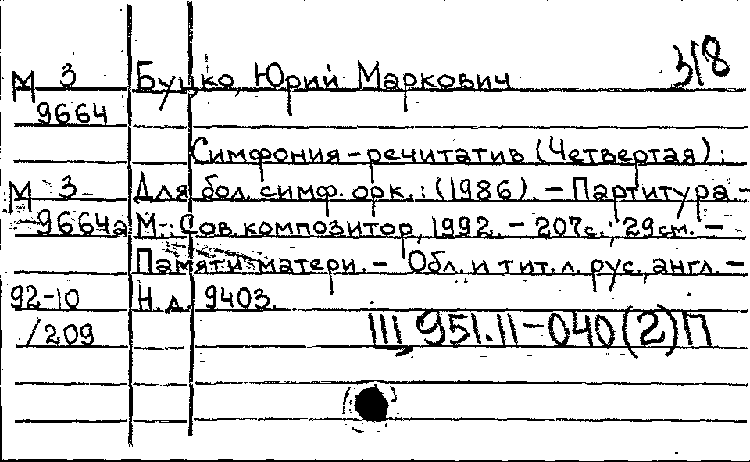 318
М 3 Буцко, Юрий Маркович
9664
Симфония-речитатив (Четвертая):
М 3 Для бол. симф. орк.: (1986). - Партитура. -
9664а М.: Сов. композитор, 1992. - 207с.; 29см. -
Памяти матери. - Обл. и тит. л. рус., англ. -
92-10 Н. д. 9403.
/209 III, 951.11-040(2)П